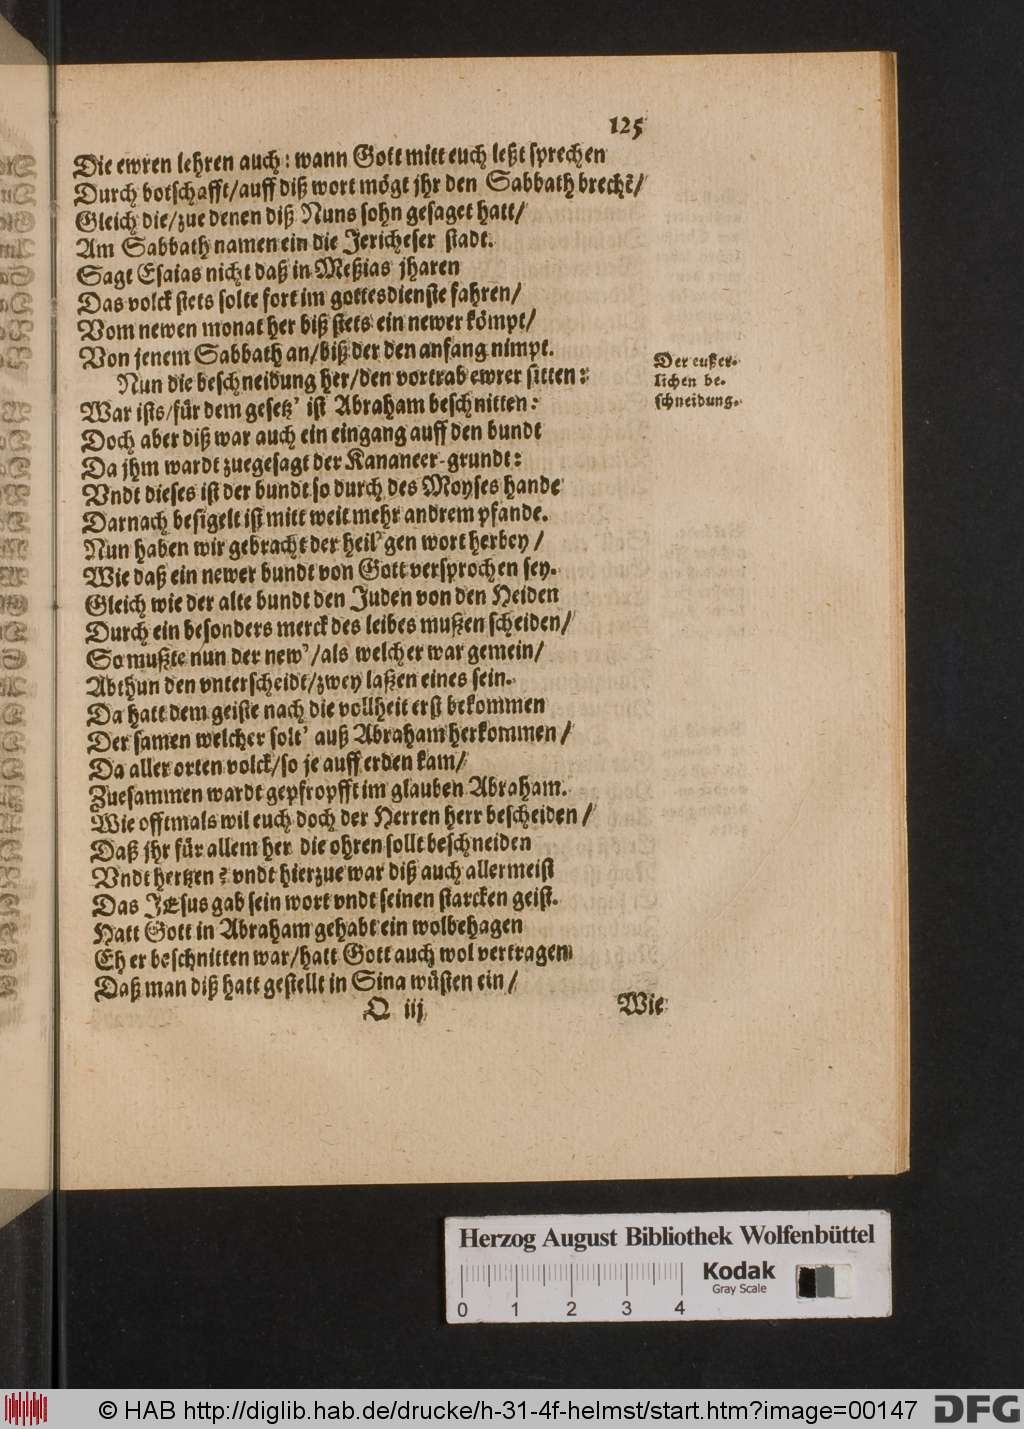 125
Die ewren lehren auch: wann Gott mitt euch leßt sprechen
Durch botschafft/auff diß wort mögt jhr den Sabbath brechẽ/
Gleich die/zue denen diß Nuns sohn gesaget hatt/
Am Sabbath namen ein die Jericheser stadt.
Sagt Esaias nicht daß in Meßias jharen
Das volck stets solte fort im gottesdienste fahren/
Vom newen monat her biß stets ein newer kömpt/
Von jenem Sabbath an/biß der den anfang nimpt.
Nun die beschneidung her/den vortrab ewrer sitten:
War ists/für dem gesetz' ist Abraham beschnitten:
Doch aber diß war auch ein eingang auff den bundt
Da jhm wardt zuegesagt der Kananeer-grundt:
Vndt dieses ist der bundt so durch des Moyses hande
Darnach besigelt ist mitt weit mehr andrem pfande.
Nun haben wir gebracht der heil'gen wort herbey /
Wie daß ein newer bundt von Gott versprochen sey.
Gleich wie der alte bundt den Juden von den Heiden
Durch ein besonders merck des leibes mußen scheiden/
So mußte nun der new'/als welcher war gemein/
Abthun den vnterscheidt/zwey laßen eines sein.
Da hatt dem geiste nach die vollheit erst bekommen
Der samen welcher solt' auß Abraham herkommen /
Da aller orten volck/so je auff erden kam/
Zuesammen wardt gepfropfft im glauben Abraham.
Wie offtmals wil euch doch der Herren herr bescheiden /
Daß jhr für allem her die ohren sollt beschneiden
Vndt hertzen? vndt hierzue war diß auch allermeist
Das JEsus gab sein wort vndt seinen starcken geist.
Hatt Gott in Abraham gehabt ein wolbehagen
Eh er beschnitten war/hatt Gott auch wol vertragen
Daß man diß hatt gestellt in Sina wüsten ein /
Der eußer-
lichen be-
schneidung.
Q iij
Wie
Herzog August Bibliothek Wolfenbüttel
Kodak
Gray Scale
0 1 2 3 4
© HAB http://diglib.hab.de/drucke/h-31-4f-helmst/start.htm?image=00147
DFG